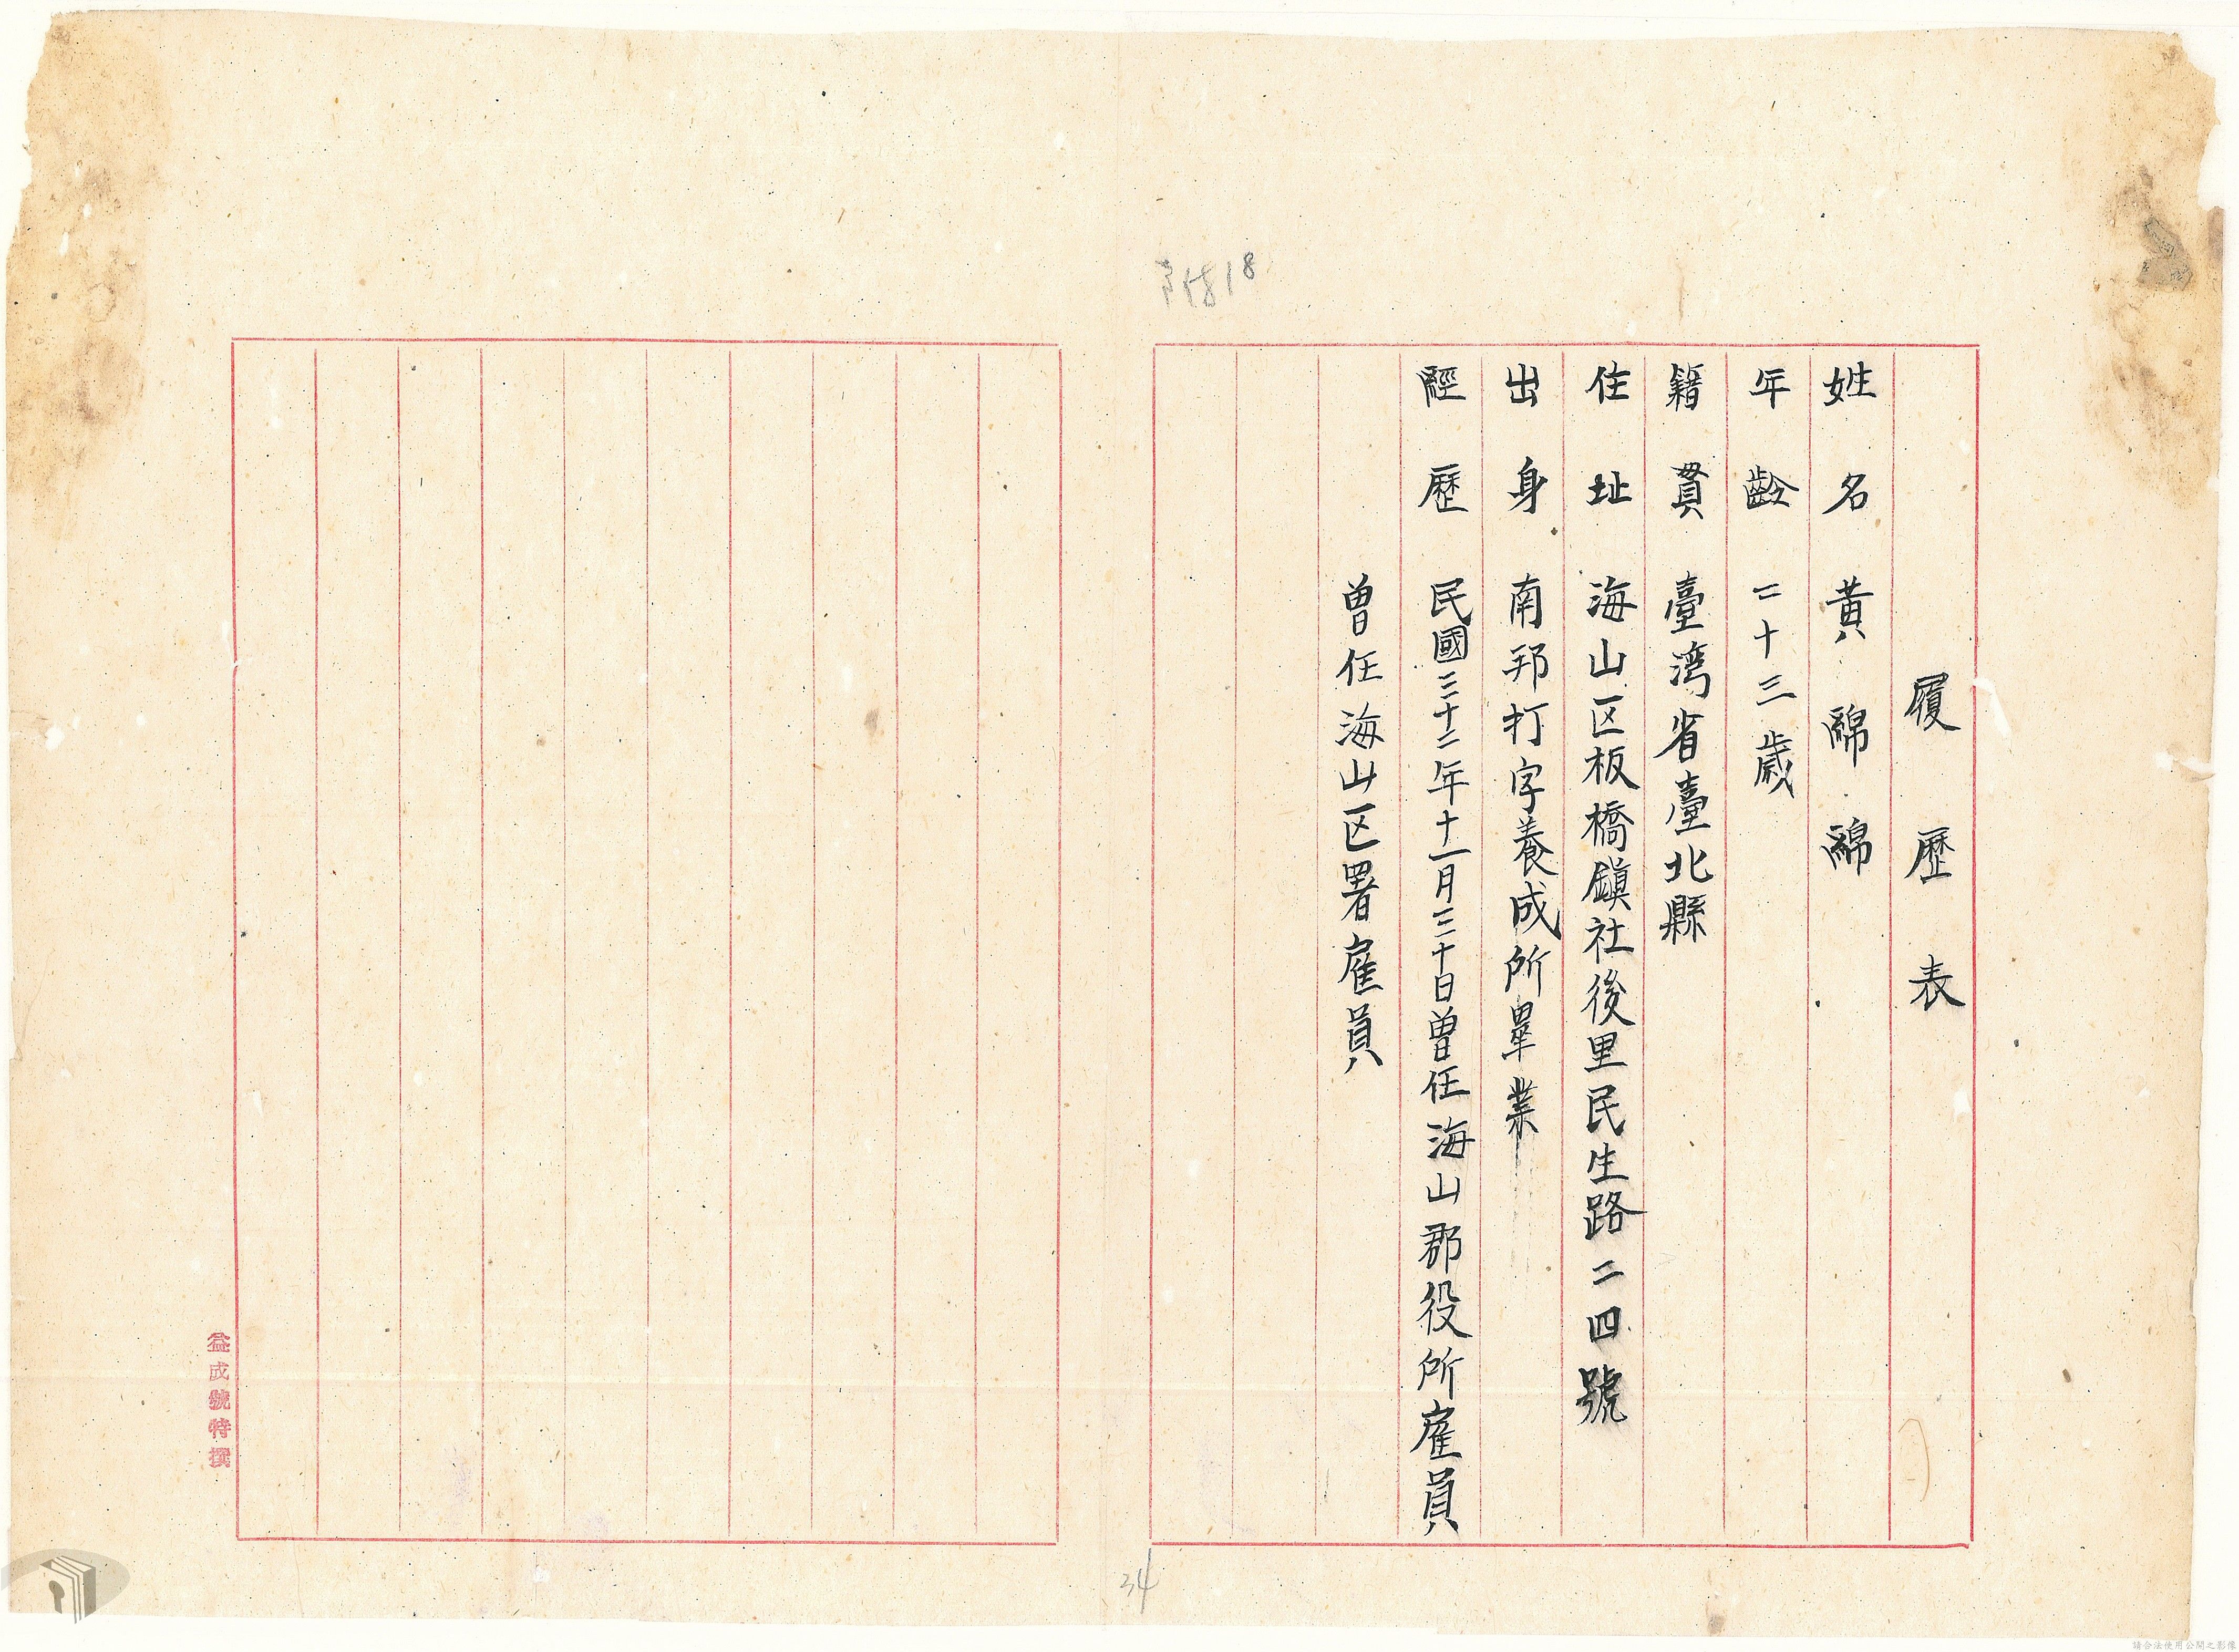 履歷表
姓名 黃綿綿
年齡 二十三歲
籍貫 臺灣省臺北縣
住址 海山区板橋鎮社後里民生路二四號
出身 南邦打字養成所畢業
經歷 民國三十二年十一月三十日曾任海山郡役所雇員
曾任海山区署雇員
附件18
34
益成號特撰
請合法使用公開之影像